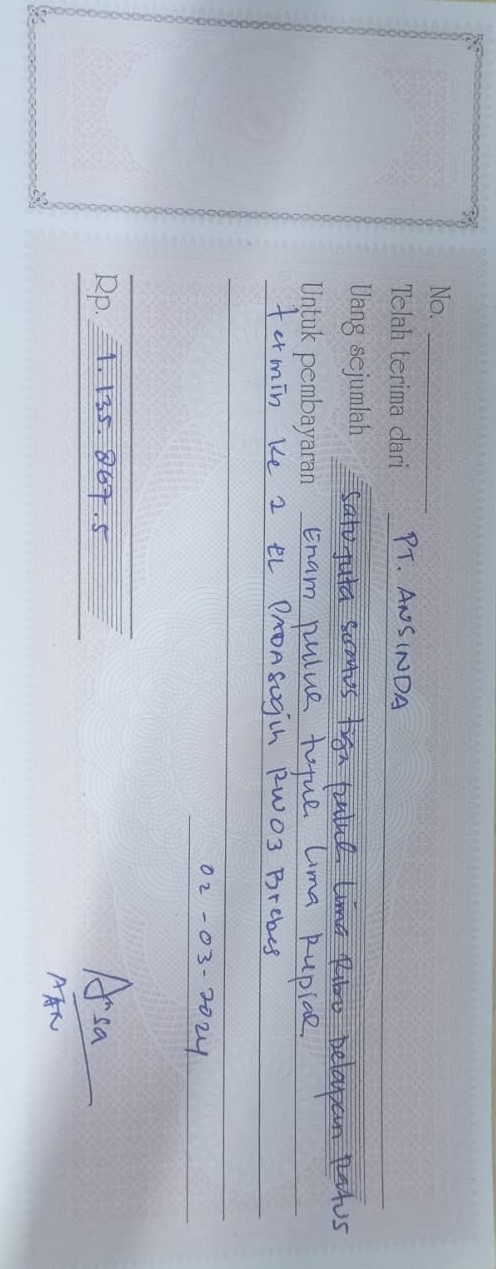 No.
Telah terima dari PT. ANSINDA
Uang sejumlah Satu juta seratus tiga puluh lima Ribu Delapan Ratus
Untuk pembayaran Enam puluh tujuh lima Rupiah
termin ke 2 EL PADASUGIH RW03 Brebes
02-03-2024
Rp. 1.135.867.5
Ansa
AAN